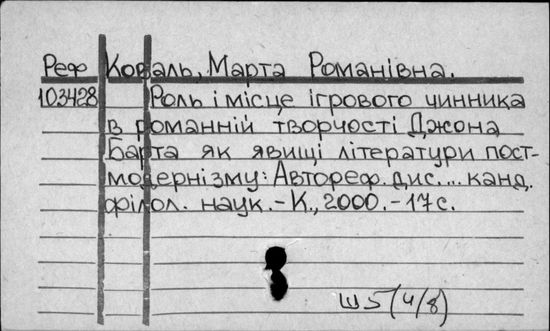 Реф Коваль, Марта Романівна.
103428 Роль і місце ігрового чинника
в романній творчості Джона
Барта як явищі літератури пост-
модернізму: Автореф. дис. ... канд.
філол. наук. - К., 2000. - 17 с.
Ш5(4/8)